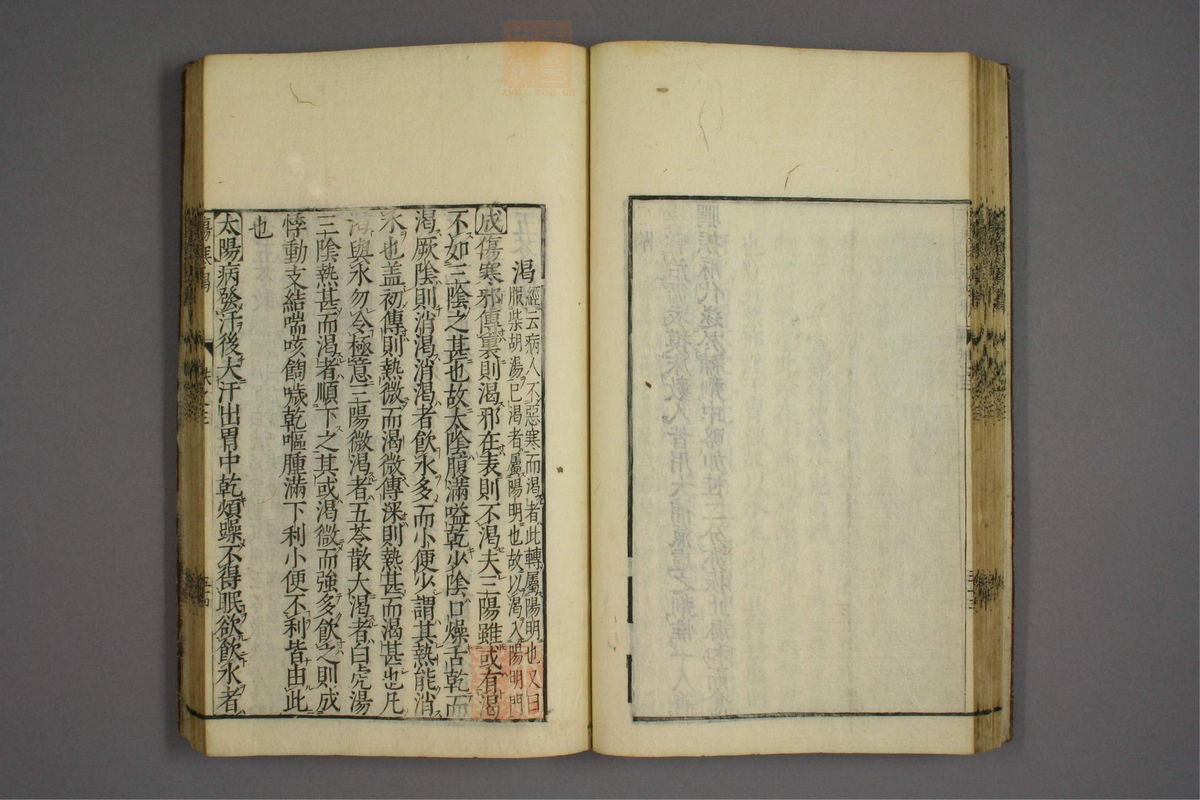 渴 經云病人不惡寒而渴者此轉屬陽明也又曰
服柴胡湯已渴者屬陽明也故以渴入陽明門
成傷寒邪傳裏則渴邪在表則不渴夫三陽雖或有渴
不如三陰之甚也故太陰腹滿嗌乾少陰口燥舌乾而
渴厥陰則消渴消渴者飲水多而小便少謂其熱能消
水也盖初傳則熱微而渴微傳深則熱甚而渴甚也凡
渴與水勿令極意三陽微渴者五苓散大渴者白虎湯
三陰熱甚而渴者順下之其或渴微而強多飲之則成
悸動支結喘咳餲噦乾嘔腫滿下利小便不利皆由此
也
太陽病發汗後大汗出胃中乾煩躁不得眠欲飲水者